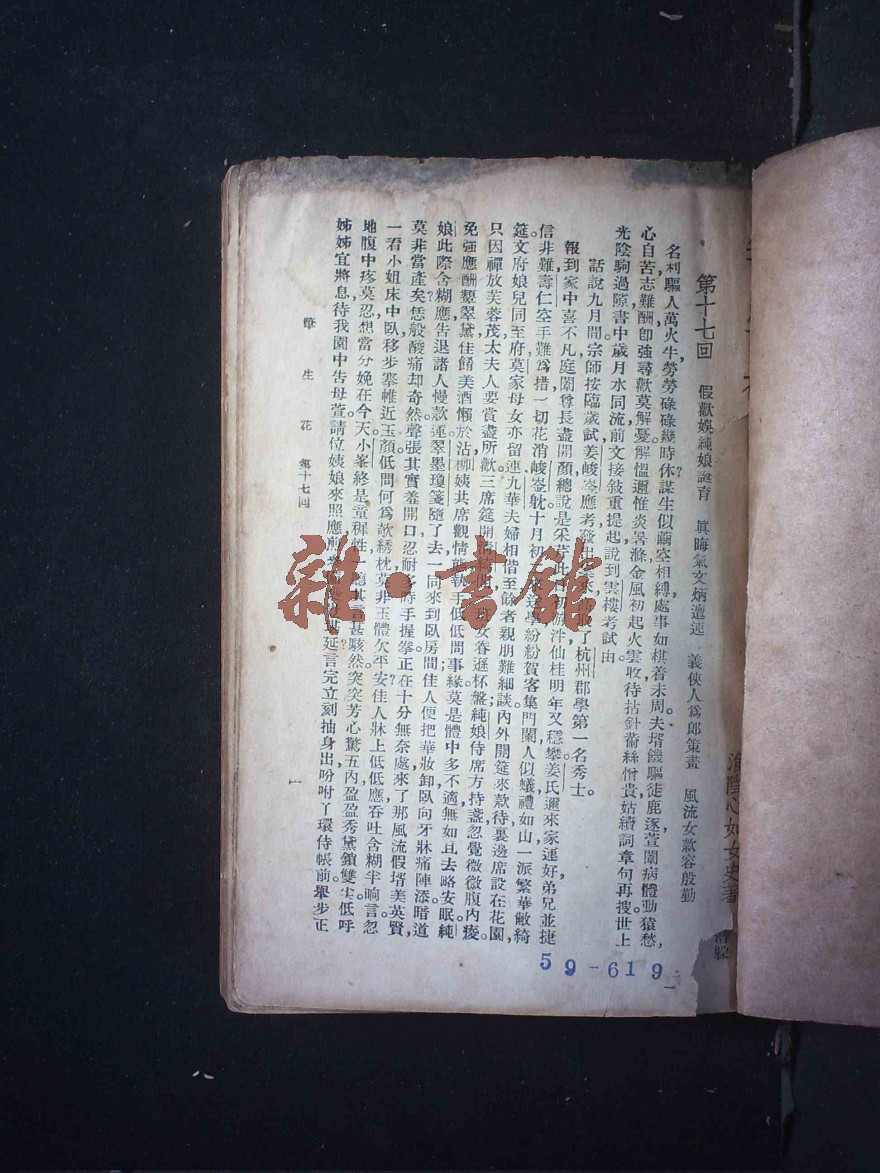 淮陰心如女史著
第十七回　假歡娛純娘誕育　眞晦氣文炳邅迍　義俠人爲郎策畫　風流女款容殷勤
名利驅人萬火牛,勞勞碌碌幾時休?謀生似繭空相縛,處事如棋着未周。夫壻饑驅徒鹿逐,萱闈病體動猿愁,
心自苦,志難酬,卽強尋歡莫解憂。解慍邇惟炎暑滌,金風初起火雲收。待拈針黹絲憎貴,姑續詞章句再搜。世上
光陰駒過隙,書中歲月水同流。前文接敍重提起,說到雲樓考試由。
話說九月間,宗師按臨歲試,姜峻崟應考,發出案來,高取了杭州郡學第一名秀士。
報到家中喜不凡,庭闈尊長盡開顏。總說是采芹此泮仙桂,明年又穩攀。姜氏邇來家運好,弟兄並捷
信非難。壽仁空手難爲措,一切花消峻崟躭。十月初送學,紛紛賀客集門闌。人似蟻,禮如山,一派繁華敞綺
筵。文府娘兒同至府,莫家母女亦留連。九華夫婦相偕至,餘者親朋難細談。內外開筵來款待,裏邊席設在花園。
只因禪放芙蓉茂,太夫人要賞盡所歡。三席筵開班女眷遜杯盤。純娘侍席方持盞,忽覺微微腹內痠。
免強應酬顰翠黛,佳餚美酒懶於沾。柳姨共席觀情態,執手低低問事緣。莫是體中多不適,無如且去略安眠。純
娘此際含糊應,告退諸人慢款蓮。翠墨瓊箋隨了去,一同來到臥房間。佳人便把華妝卸,臥向牙牀痛陣添。暗道
莫非當產矣?恁般酸痛却奇然。聲張其實羞開口,忍耐多時手握拳。正在十分無奈處,來了那風流假壻美英賢。
一看小姐床中臥,移步搴帷近玉顏。低問何爲欹綉枕,莫非玉體欠平安?佳人牀上低低應,吞吐含糊半晌言。忽
地腹中疼莫忍,想當分娩在今天。小峯終是童穉性,聽其言甚駭然。突突芳心驚五內,盈盈秀黛鎖雙尖。低呼
姊姊宜將息,待我園中告母萱。請位姨娘來照應,延。言完立刻抽身出,吩咐丫環侍帳前。舉步正
筆生花　第十七回　一
雜·書館
59-619